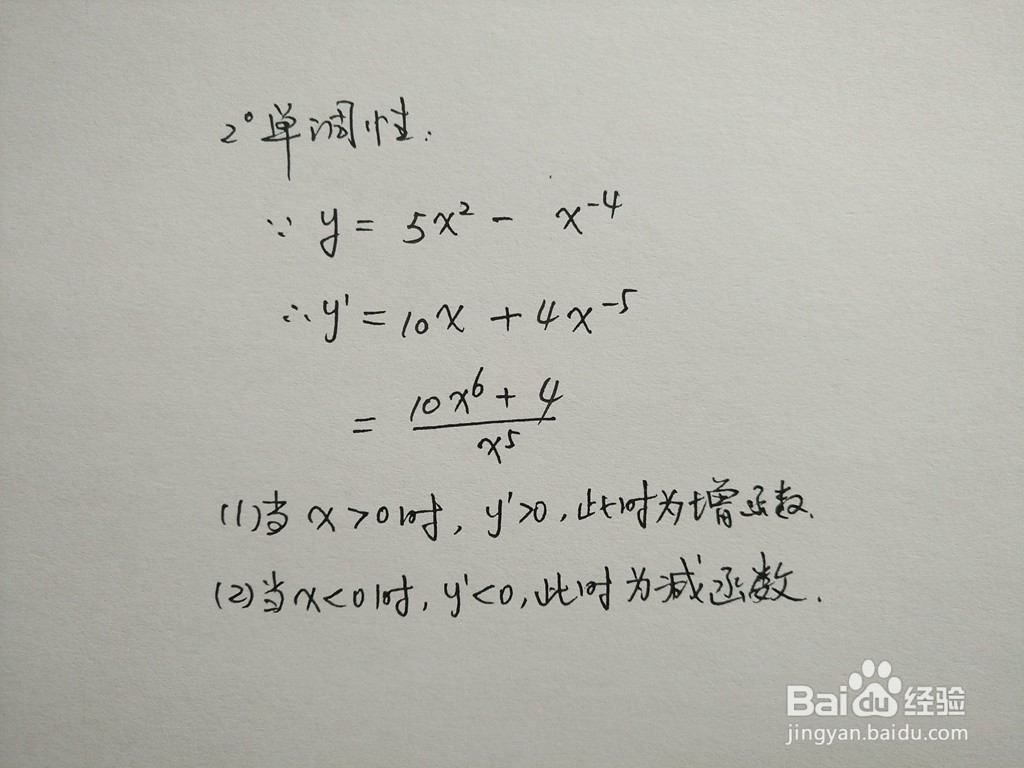 2° 单调性:
∵ y = 5x² - x⁻⁴
∴ y' = 10x + 4x⁻⁵
= (10x⁶ + 4)/x⁵
(1)当 x>0时, y'>0,此时为增函数.
(2)当x<0时, y'<0,此时为减函数.
Bai du 经验
jingyan.baidu.com